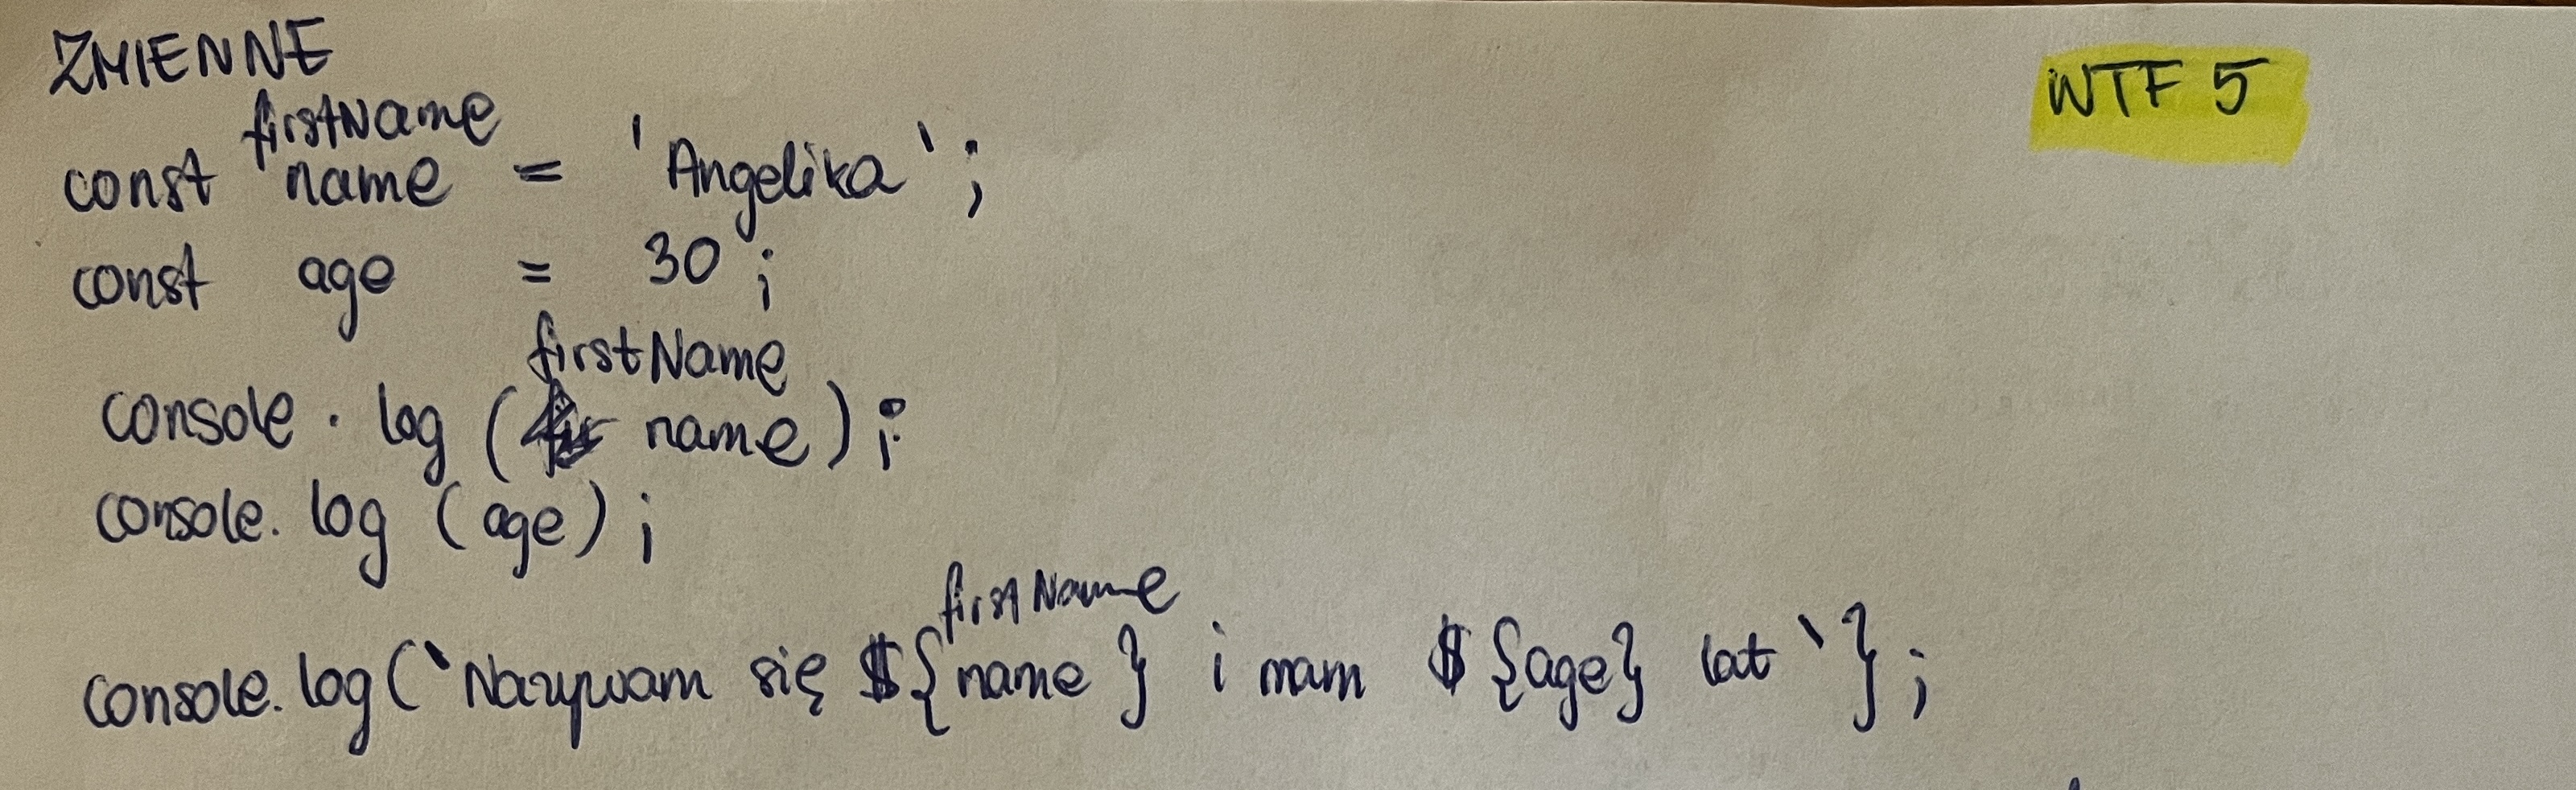 ZMIENNE
WTF 5
firstName
const name = 'Angelika';
const age = 30;
firstName
console.log(name);
console.log(age);
firstName
console.log(`Nazywam się ${name} i mam ${age} lat`};